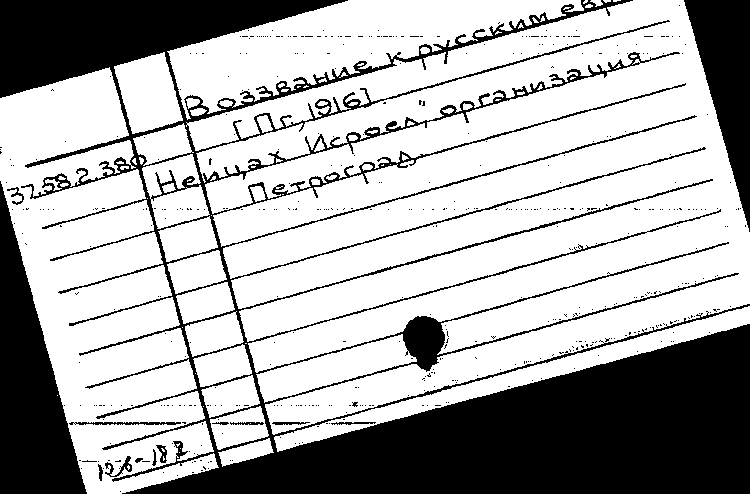 Воззвание к русским евр
[Пг, 1916].
37.58.2.380
Нейцах Исраел", организация
Петроград.
126-187